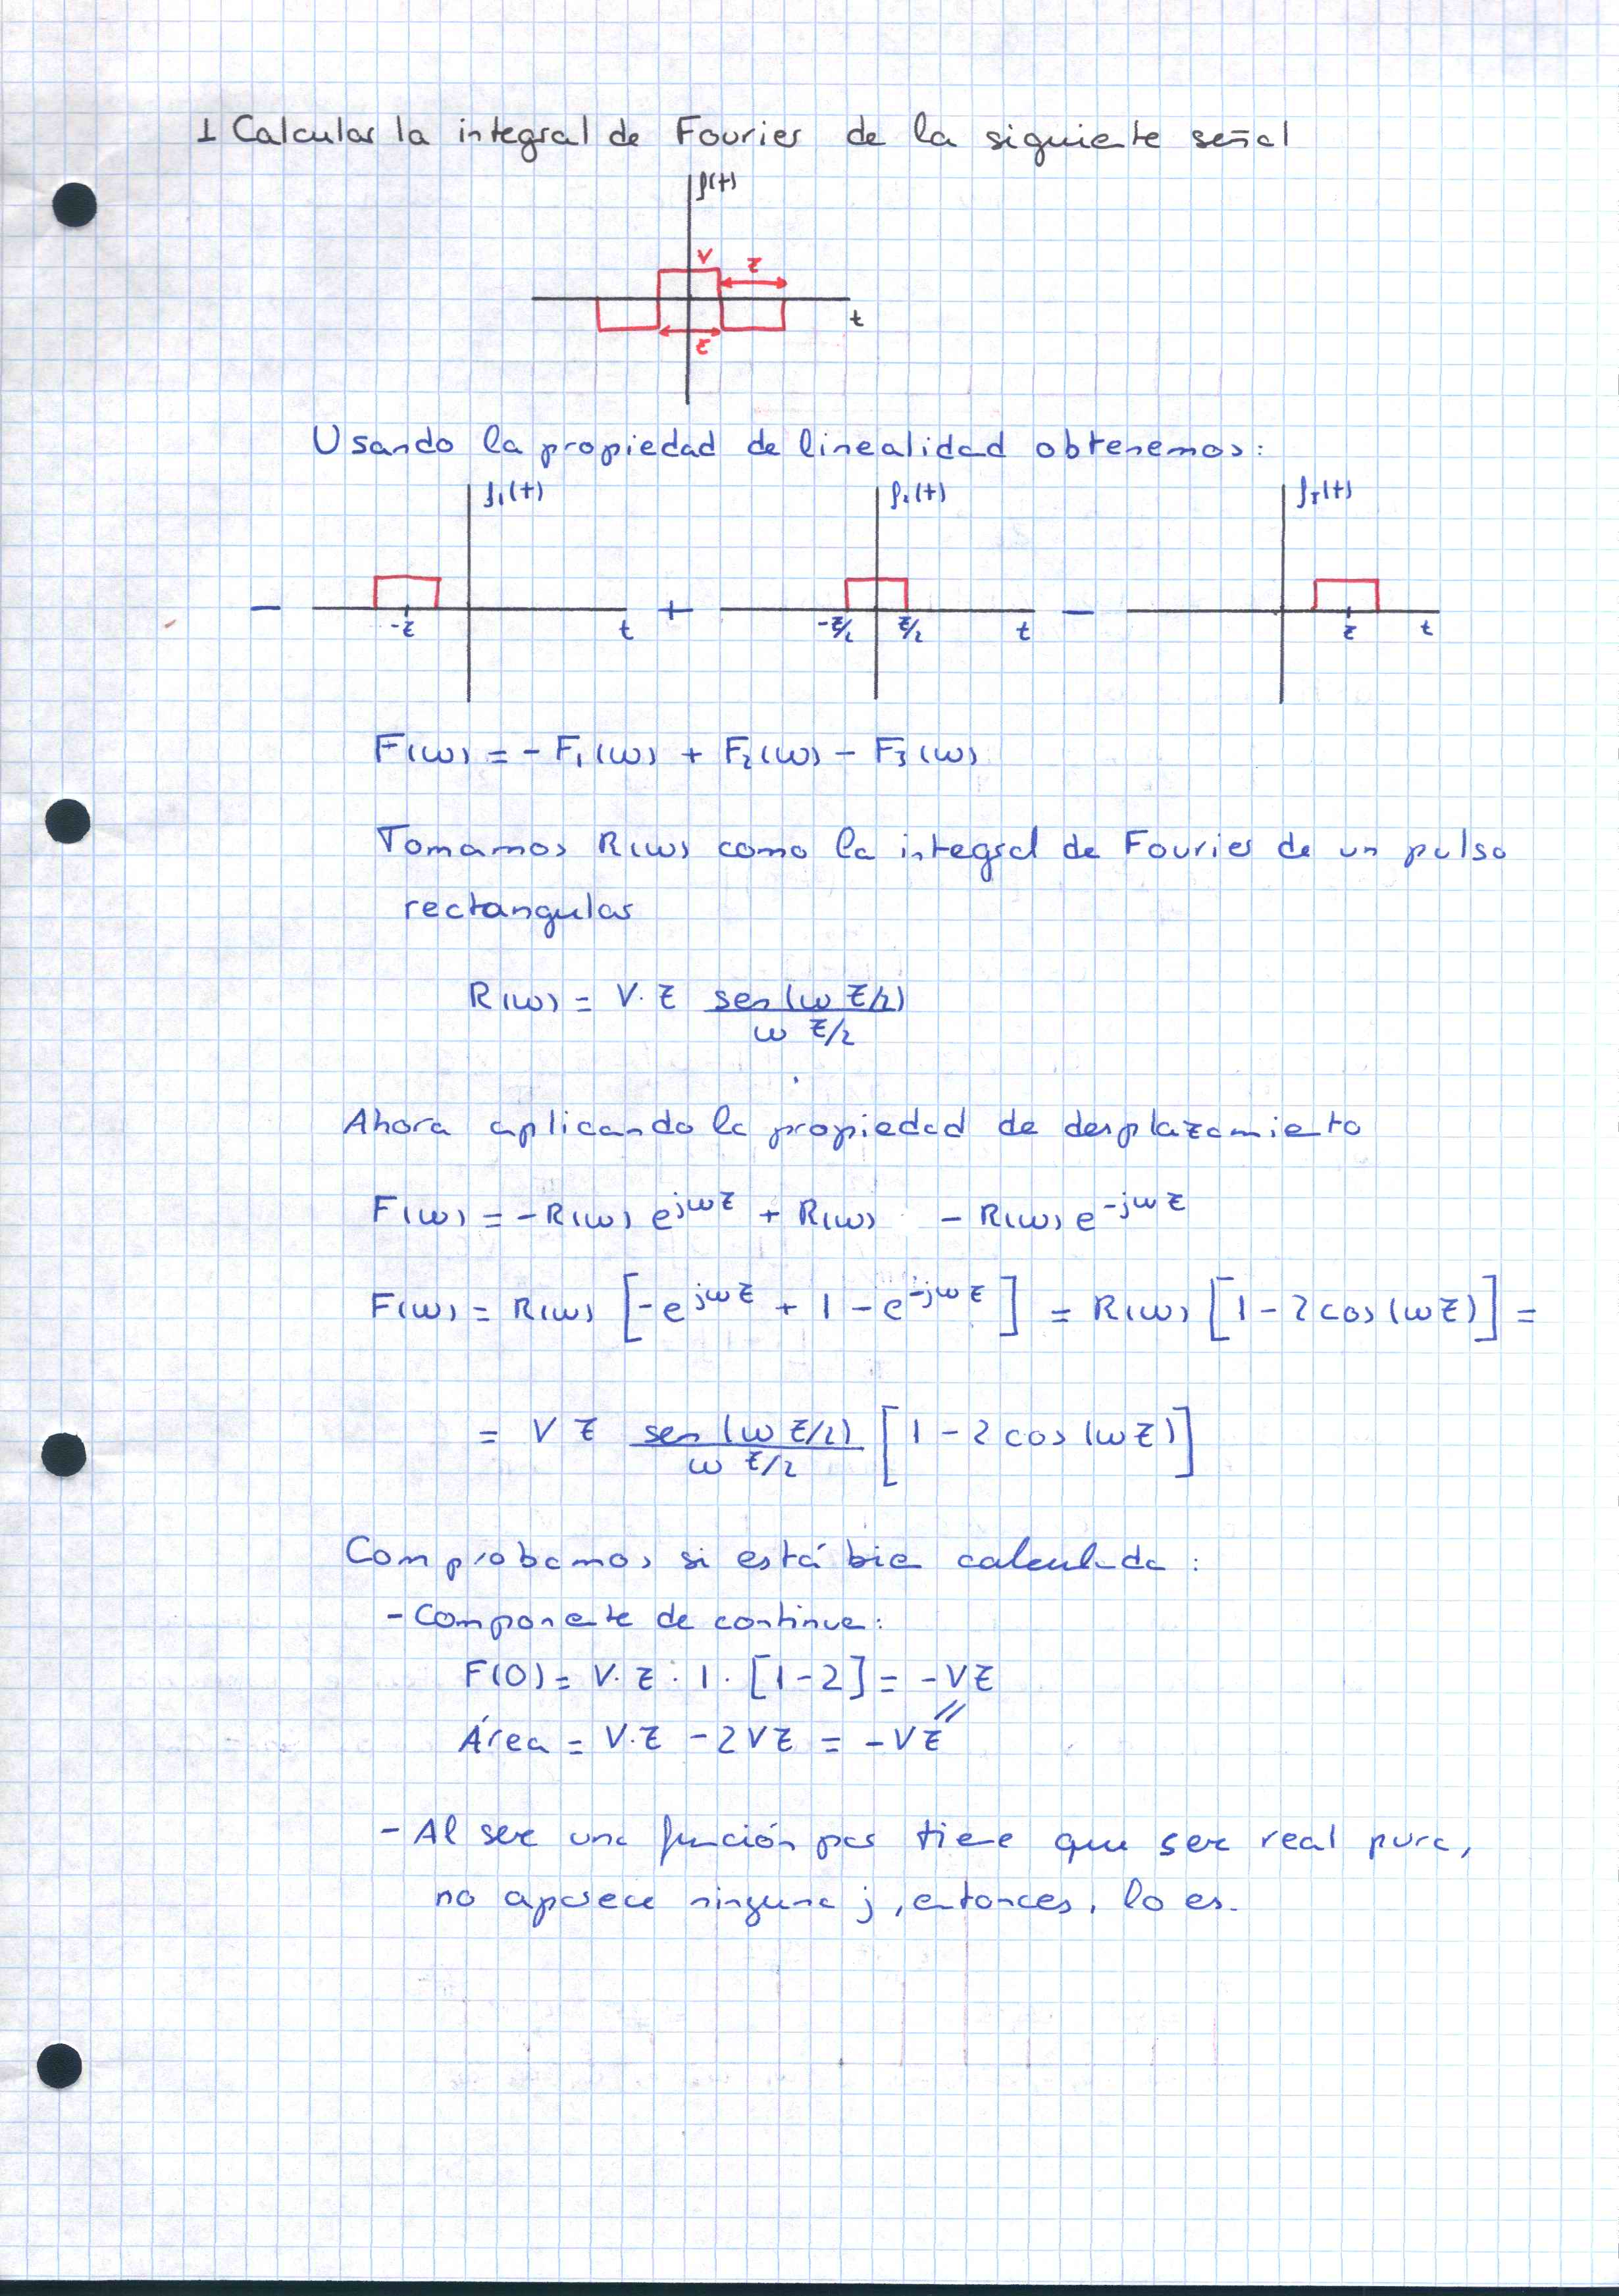 1 Calcular la integral de Fourier de la siguiente señal
f(t)
V
τ
t
τ
Usando la propiedad de linealidad obtenemos:
f₁(t) f₂(t) f₃(t)
− -τ t + -τ/2 τ/2 t − τ t
F(ω) = - F₁(ω) + F₂(ω) - F₃(ω)
Tomamos R(ω) como la integral de Fourier de un pulso
rectangular
R(ω) = V·τ sen(ω τ/2) / ω τ/2
Ahora aplicando la propiedad de desplazamiento
F(ω) = -R(ω) e^{jωτ} + R(ω) - R(ω) e^{-jωτ}
F(ω) = R(ω) [-e^{jωτ} + 1 - e^{-jωτ}] = R(ω) [1 - 2cos(ωτ)] =
= Vτ sen(ω τ/2) / ω τ/2 [1 - 2cos(ωτ)]
Comprobamos si está bien calculada:
- Componente de continua:
F(0) = V·τ·1·[1-2] = -Vτ
Área = V·τ - 2Vτ = -Vτ
- Al ser una función par tiene que ser real pura,
no aparece ninguna j, entonces, lo es.